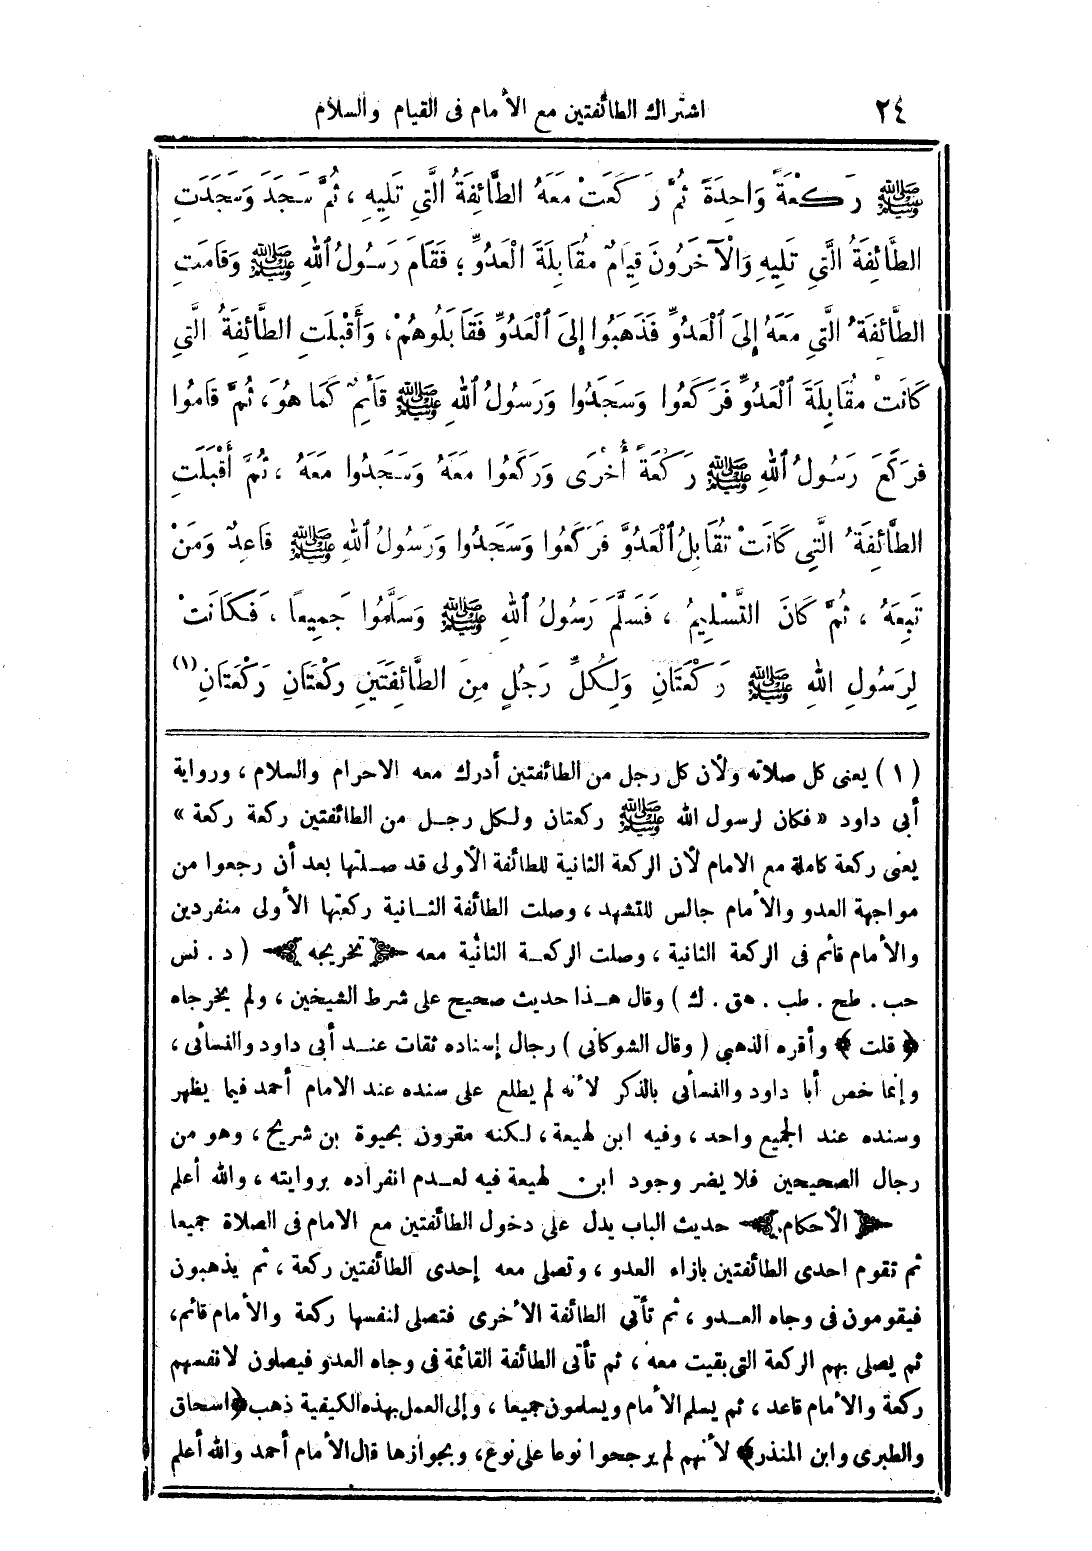 ٢٤ اشتراك الطائفتين مع الأمام فى القيام والسلام
ﷺ رَكْعَةً وَاحِدَةً ثُمَّ رَكَعَتْ مَعَهُ الطَّائِفَةُ الَّتِي تَلِيهِ ، ثُمَّ سَجَدَ وَسَجَدَتِ
الطَّائِفَةُ الَّتِي تَلِيهِ وَالْآخَرُونَ قِيَامٌ مُقَابِلَةَ الْعَدُوِّ ؛ فَقَامَ رَسُولُ اللهِ ﷺ وَقَامَتِ
الطَّائِفَةُ الَّتِي مَعَهُ إِلَى الْعَدُوِّ فَذَهَبُوا إِلَى الْعَدُوِّ فَقَابَلُوهُمْ، وَأَقْبَلَتِ الطَّائِفَةُ الَّتِي
كَانَتْ مُقَابِلَةَ الْعَدُوِّ فَرَكَعُوا وَسَجَدُوا وَرَسُولُ اللهِ ﷺ قَائِمٌ كَمَا هُوَ، ثُمَّ قَامُوا
فَرَكَعَ رَسُولُ اللهِ ﷺ رَكْعَةً أُخْرَى وَرَكَعُوا مَعَهُ وَسَجَدُوا مَعَهُ ، ثُمَّ أَقْبَلَتِ
الطَّائِفَةُ الَّتِي كَانَتْ تُقَابِلُ الْعَدُوَّ فَرَكَعُوا وَسَجَدُوا وَرَسُولُ اللهِ ﷺ قَاعِدٌ وَمَنْ
تَبِعَهُ ، ثُمَّ كَانَ التَّسْلِيمُ ، فَسَلَّمَ رَسُولُ اللهِ ﷺ وَسَلَّمُوا جَمِيعًا ، فَكَانَتْ
لِرَسُولِ اللهِ ﷺ رَكْعَتَانِ وَلِكُلِّ رَجُلٍ مِنَ الطَّائِفَتَيْنِ رَكْعَتَانِ رَكْعَتَانِ (١)
(١) يعنى كل صلاته ولأن كل رجل من الطائفتين أدرك معه الاحرام والسلام ، ورواية
أبى داود « فكان لرسول الله ﷺ ركعتان ولكل رجل من الطائفتين ركعة ركعة »
يعنى ركعة كاملة مع الامام لأن الركعة الثانية للطائفة الأولى قد صلتها بعد أن رجعوا من
مواجهة العدو والأمام جالس للتشهد ، وصلت الطائفة الثانية ركعتها الأولى منفردين
والأمام قائم فى الركعة الثانية ، وصلت الركعة الثانية معه ﴿ تخريجه ﴾ ( د . نس
حب . طح . طب . هق . ك ) وقال هذا حديث صحيح على شرط الشيخين ، ولم يخرجاه
﴿ قلت ﴾ وأقره الذهبى ( وقال الشوكانى ) رجال إسناده ثقات عند أبى داود والنسائى ،
وإنما خص أبا داود والنسائى بالذكر لأنه لم يطلع على سنده عند الامام أحمد فيما يظهر
وسنده عند الجميع واحد ، وفيه ابن لهيعة ، لكنه مقرون بحيوة بن شريح ، وهو من
رجال الصحيحين فلا يضر وجود ابن لهيعة فيه لعدم انفراده بروايته ، والله أعلم
﴿ الأحكام ﴾ حديث الباب يدل على دخول الطائفتين مع الامام فى الصلاة جميعا
ثم تقوم احدى الطائفتين بازاء العدو ، وتصلى معه إحدى الطائفتين ركعة ، ثم يذهبون
فيقومون فى وجاه العدو ، ثم تأتى الطائفة الأخرى فتصلى لنفسها ركعة والأمام قائم ،
ثم يصلى بهم الركعة التى بقيت معه ، ثم تأتى الطائفة القائمة فى وجاه العدو فيصلون لانفسهم
ركعة والأمام قاعد ، ثم يسلم الأمام ويسلمون جميعا ، وإلى العمل بهذه الكيفية ذهب ﴿ اسحاق
والطبرى وابن المنذر ﴾ لأنهم لم يرجحوا نوعا على نوع ، وبجوازها قال الأمام أحمد والله أعلم